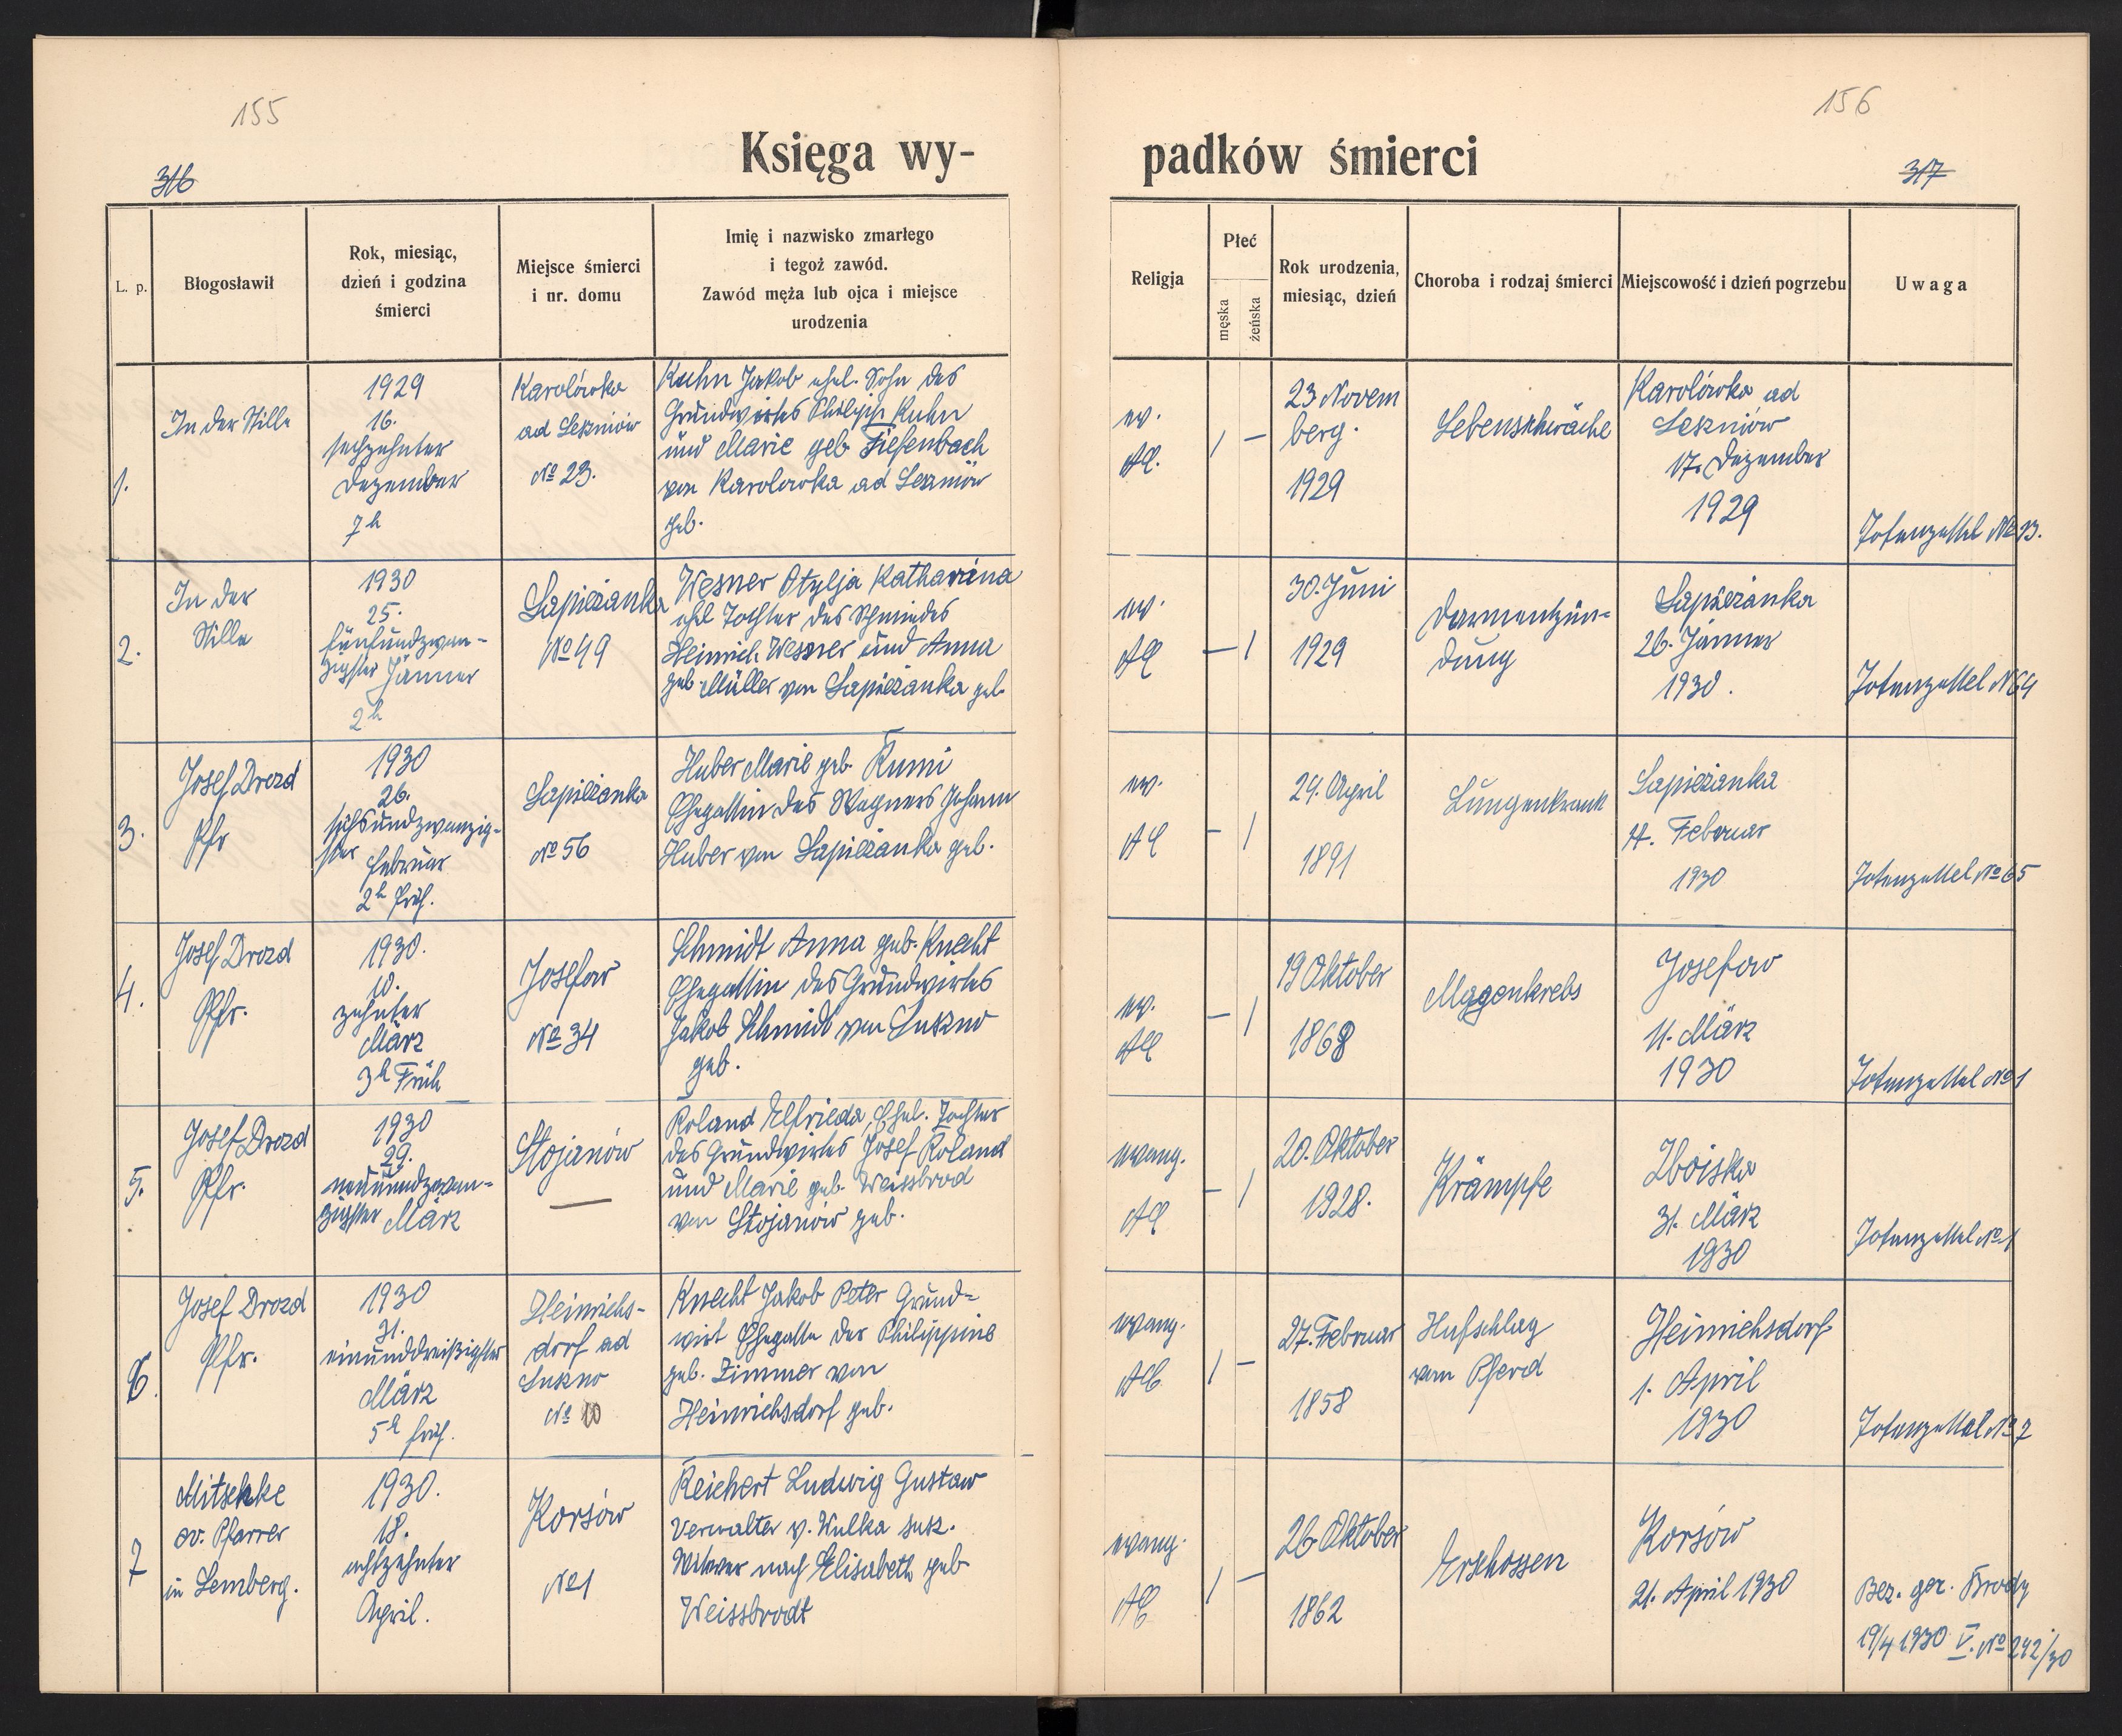 155
156
316
317
Księga wy-
padków śmierci
L. p.
Błogosławił
Rok, miesiąc,
dzień i godzina
śmierci
Miejsce śmierci
i nr. domu
Imię i nazwisko zmarłego
i tegoż zawód.
Zawód męża lub ojca i miejsce
urodzenia
Religja
Płeć
męska
żeńska
Rok urodzenia,
miesiąc, dzień
Choroba i rodzaj śmierci
Miejscowość i dzień pogrzebu
Uwaga
1.
In der Stille
1929
16.
sechzehnter
Dezember
7 h
Karolówka
ad Leszniów
No 23.
Kuhn Jakob ehel. Sohn des
Grundwirtes Philipp Kuhn
und Marie geb. Tiefenbach
von Karolowka ad Leszniów
geb.
ev.
AC.
1 –
23 Novem
berg.
1929
Lebensschwäche
Karolówka ad
Leszniów
17. Dezember
1929
Totenzettel No 23.
2.
In der
Stille
1930
25.
fünfundzwan-
zigster Jänner
2 h
Sapieżanka
No 49
Wesner Otylja Katharina
ehel Tochter des Schmiedes
Heinrich Wesner und Anna
geb. Müller von Sapieżanka geb.
ev.
AC
– 1
30. Juni
1929
Darmentzün-
dung
Sapieżanka
26. Jänner
1930.
Totenzettel N 64
3.
Josef Drozd
Pfr
1930
26.
sechsundzwanzig-
ster
Februar
2 h früh.
Sapieżanka
No 56
Huber Marie geb. Rumi
Ehegattin des Wagners Johann
Huber von Sapieżanka geb.
ev.
AC
– 1
29. April
1891
Lungenkrank
Sapieżanka
Februar
1930
Totenzettel No 65
4.
Josef Drozd
Pfr.
1930.
10.
zehnter
März
3 h Früh
Josefow
No 34
Schmidt Anna geb. Knecht
Ehegattin des Grundwirtes
Jakob Schmidt von Suszno
geb.
ev.
AC
– 1
19 Oktober
1868
Magenkrebs
Josefow
11. März
1930
Totenzettel No 1
5.
Josef Drozd
Pfr.
1930
29.
neunundzwan-
zigster März
Stojanów
—
Roland Elfrieda, Ehel. Tochter
des Grundwirtes Josef Roland
und Marie geb. Weissbrod
von Stojanów geb.
evang.
AC
– 1
20. Oktober
1928.
Krämpfe
Zboiska
31. März
1930
Totenzettel No 1
6.
Josef Drozd
Pfr.
1930
31.
einunddreißigster
März
5 h früh.
Heinrichs-
dorf ad
Suszno
No 10
Knecht Jakob Peter Grund-
wirt Ehegatte der Philippine
geb. Zimmer von
Heinrichsdorf geb.
evang.
AC
1 –
27. Februar
1858
Hufschlag
vom Pferd
Heinrichsdorf
1. April
1930
Totenzettel No 7
7
Mitschke
ev. Pfarrer
in Lemberg.
1930.
18.
achtzehnter
April.
Korsów
No 1
Reichert Ludwig Gustaw
Verwalter v. Wulka susz.
Witwer nach Elisabeth geb
Weissbrodt
evang.
AC
1 –
26 Oktober
1862
Erschossen
Korsów
21. April 1930
Bez. ger. Brody
19/4 1930 V. No 242/30